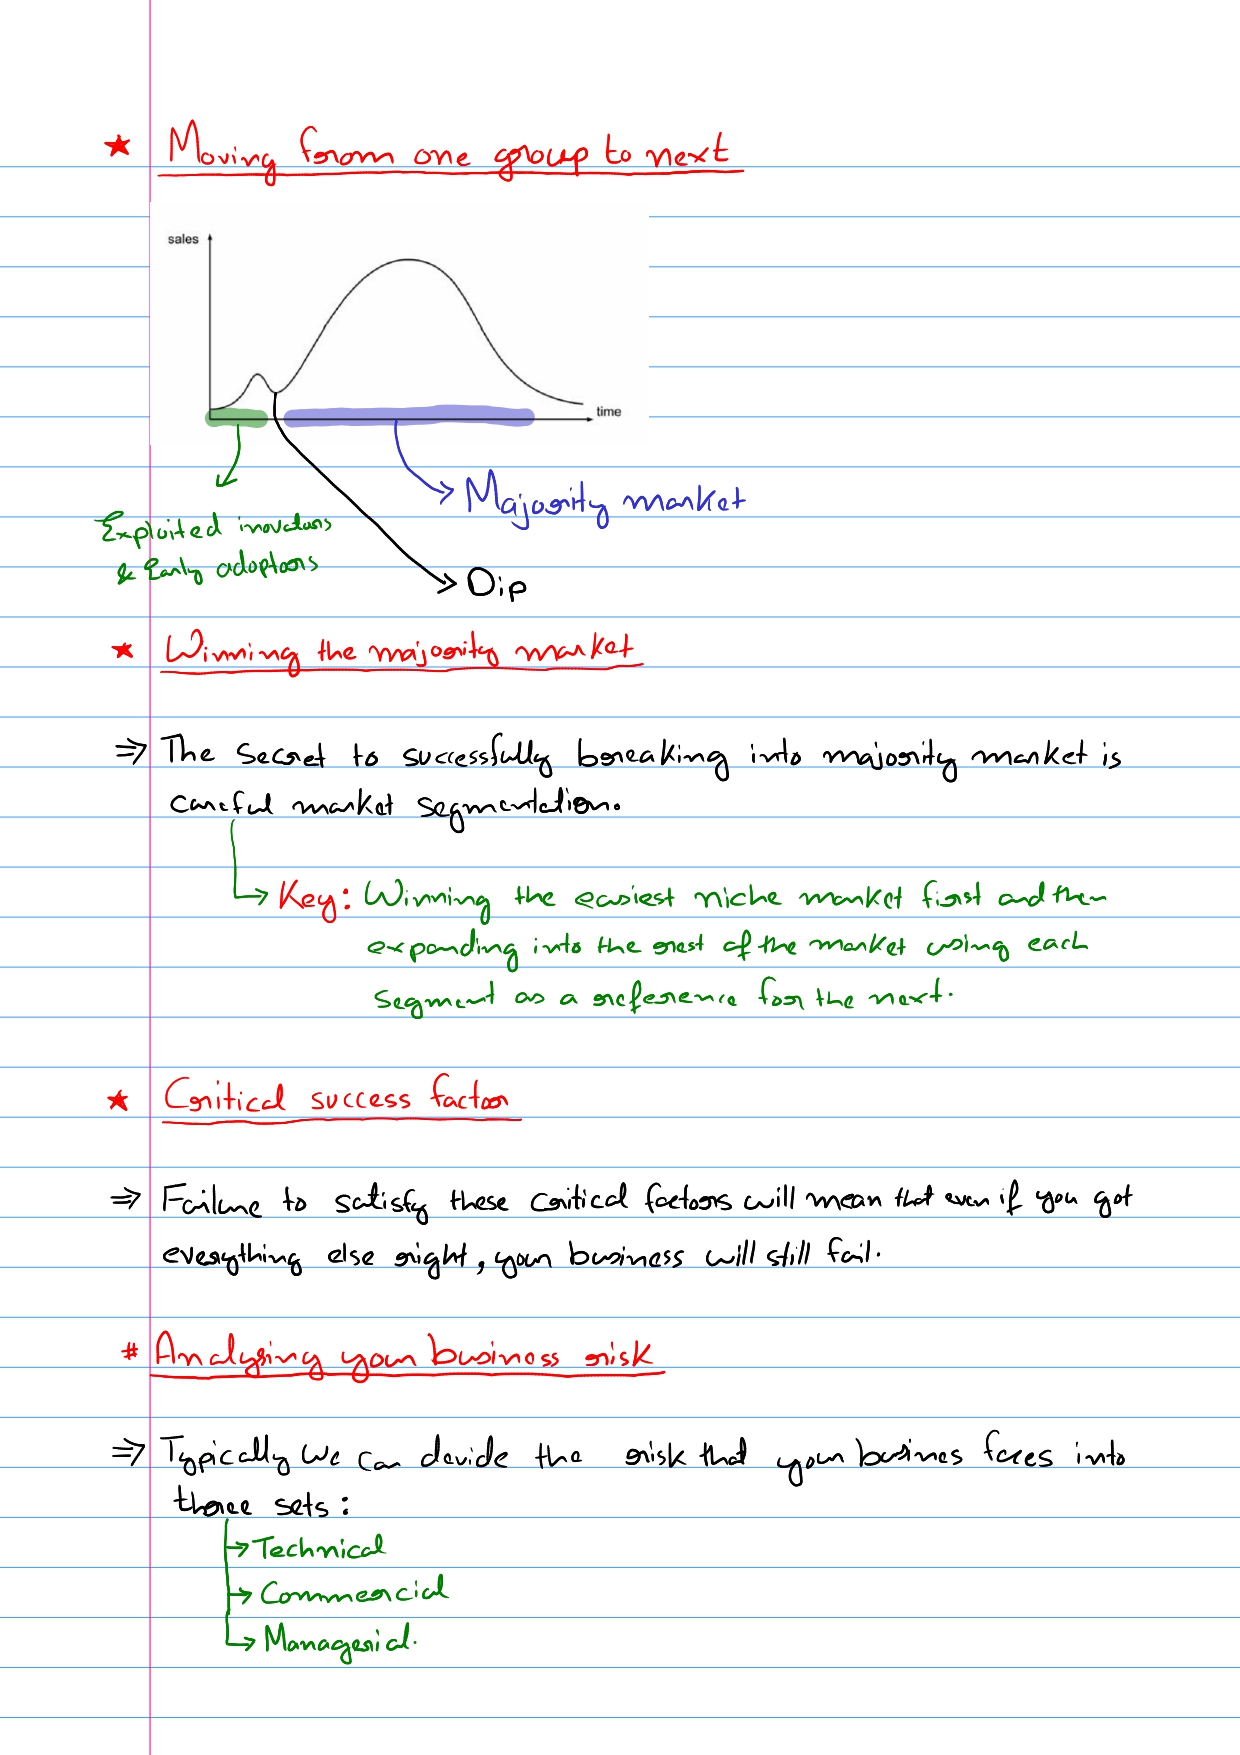 ★ Moving from one group to next
sales
time
Majority market
Exploited inovators
& Early adoptors
Dip
★ Winning the majority market
⇒ The secret to successfully breaking into majority market is
careful market segmentation.
Key: Winning the easiest niche market first and then
expanding into the rest of the market using each
segment as a reference for the next.
★ Critical success factor
⇒ Failure to satisfy these critical factors will mean that even if you got
everything else right, your business will still fail.
# Analysing your business risk
⇒ Typically we can devide the risk that your busines faces into
three sets:
Technical
Commercial
Managerial.